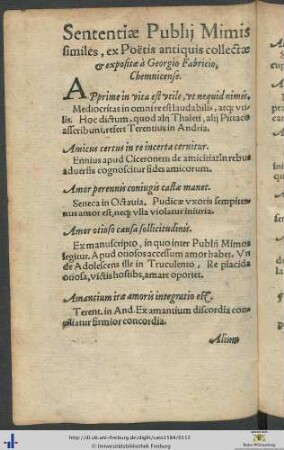 Sententiæ Publij Mimis
similes, ex Poëtis antiquis collectæ
& expositæ à Georgio Fabricio,
Chemnicense.
APprime in vita est vtile, vt nequid nimis,
Mediocritas in omni re est laudabilis, atq; vti-
lis. Hoc dictum, quod alij Thaleti, alij Pittaco
asscribunt, refert Terentius in Andria.
Amicus certus in re incerta cernitur.
Ennius apud Ciceronem de amicitia: In rebus
aduersis cognoscitur fides amicorum.
Amor perennis coniugis castæ manet.
Seneca in Octauia. Pudicæ vxoris sempiter-
nus amor est, neq; vlla violatur iniuria.
Amor otioso causa sollicitudinis.
Ex manuscripto, in quo inter Publij Mimos
legitur. Apud otiosos accessum amor habet. Vn
de Adolescens ille in Truculento, Re placida
otiosa, victis hostibus, amare oportet.
Amantium iræ amoris integratio est.
Terent. in And. Ex amantium discordia con-
ciliatur firmior concordia.
Alium
http://dl.ub.uni-freiburg.de/diglit/cato1584/0112
© Universitätsbibliothek Freiburg